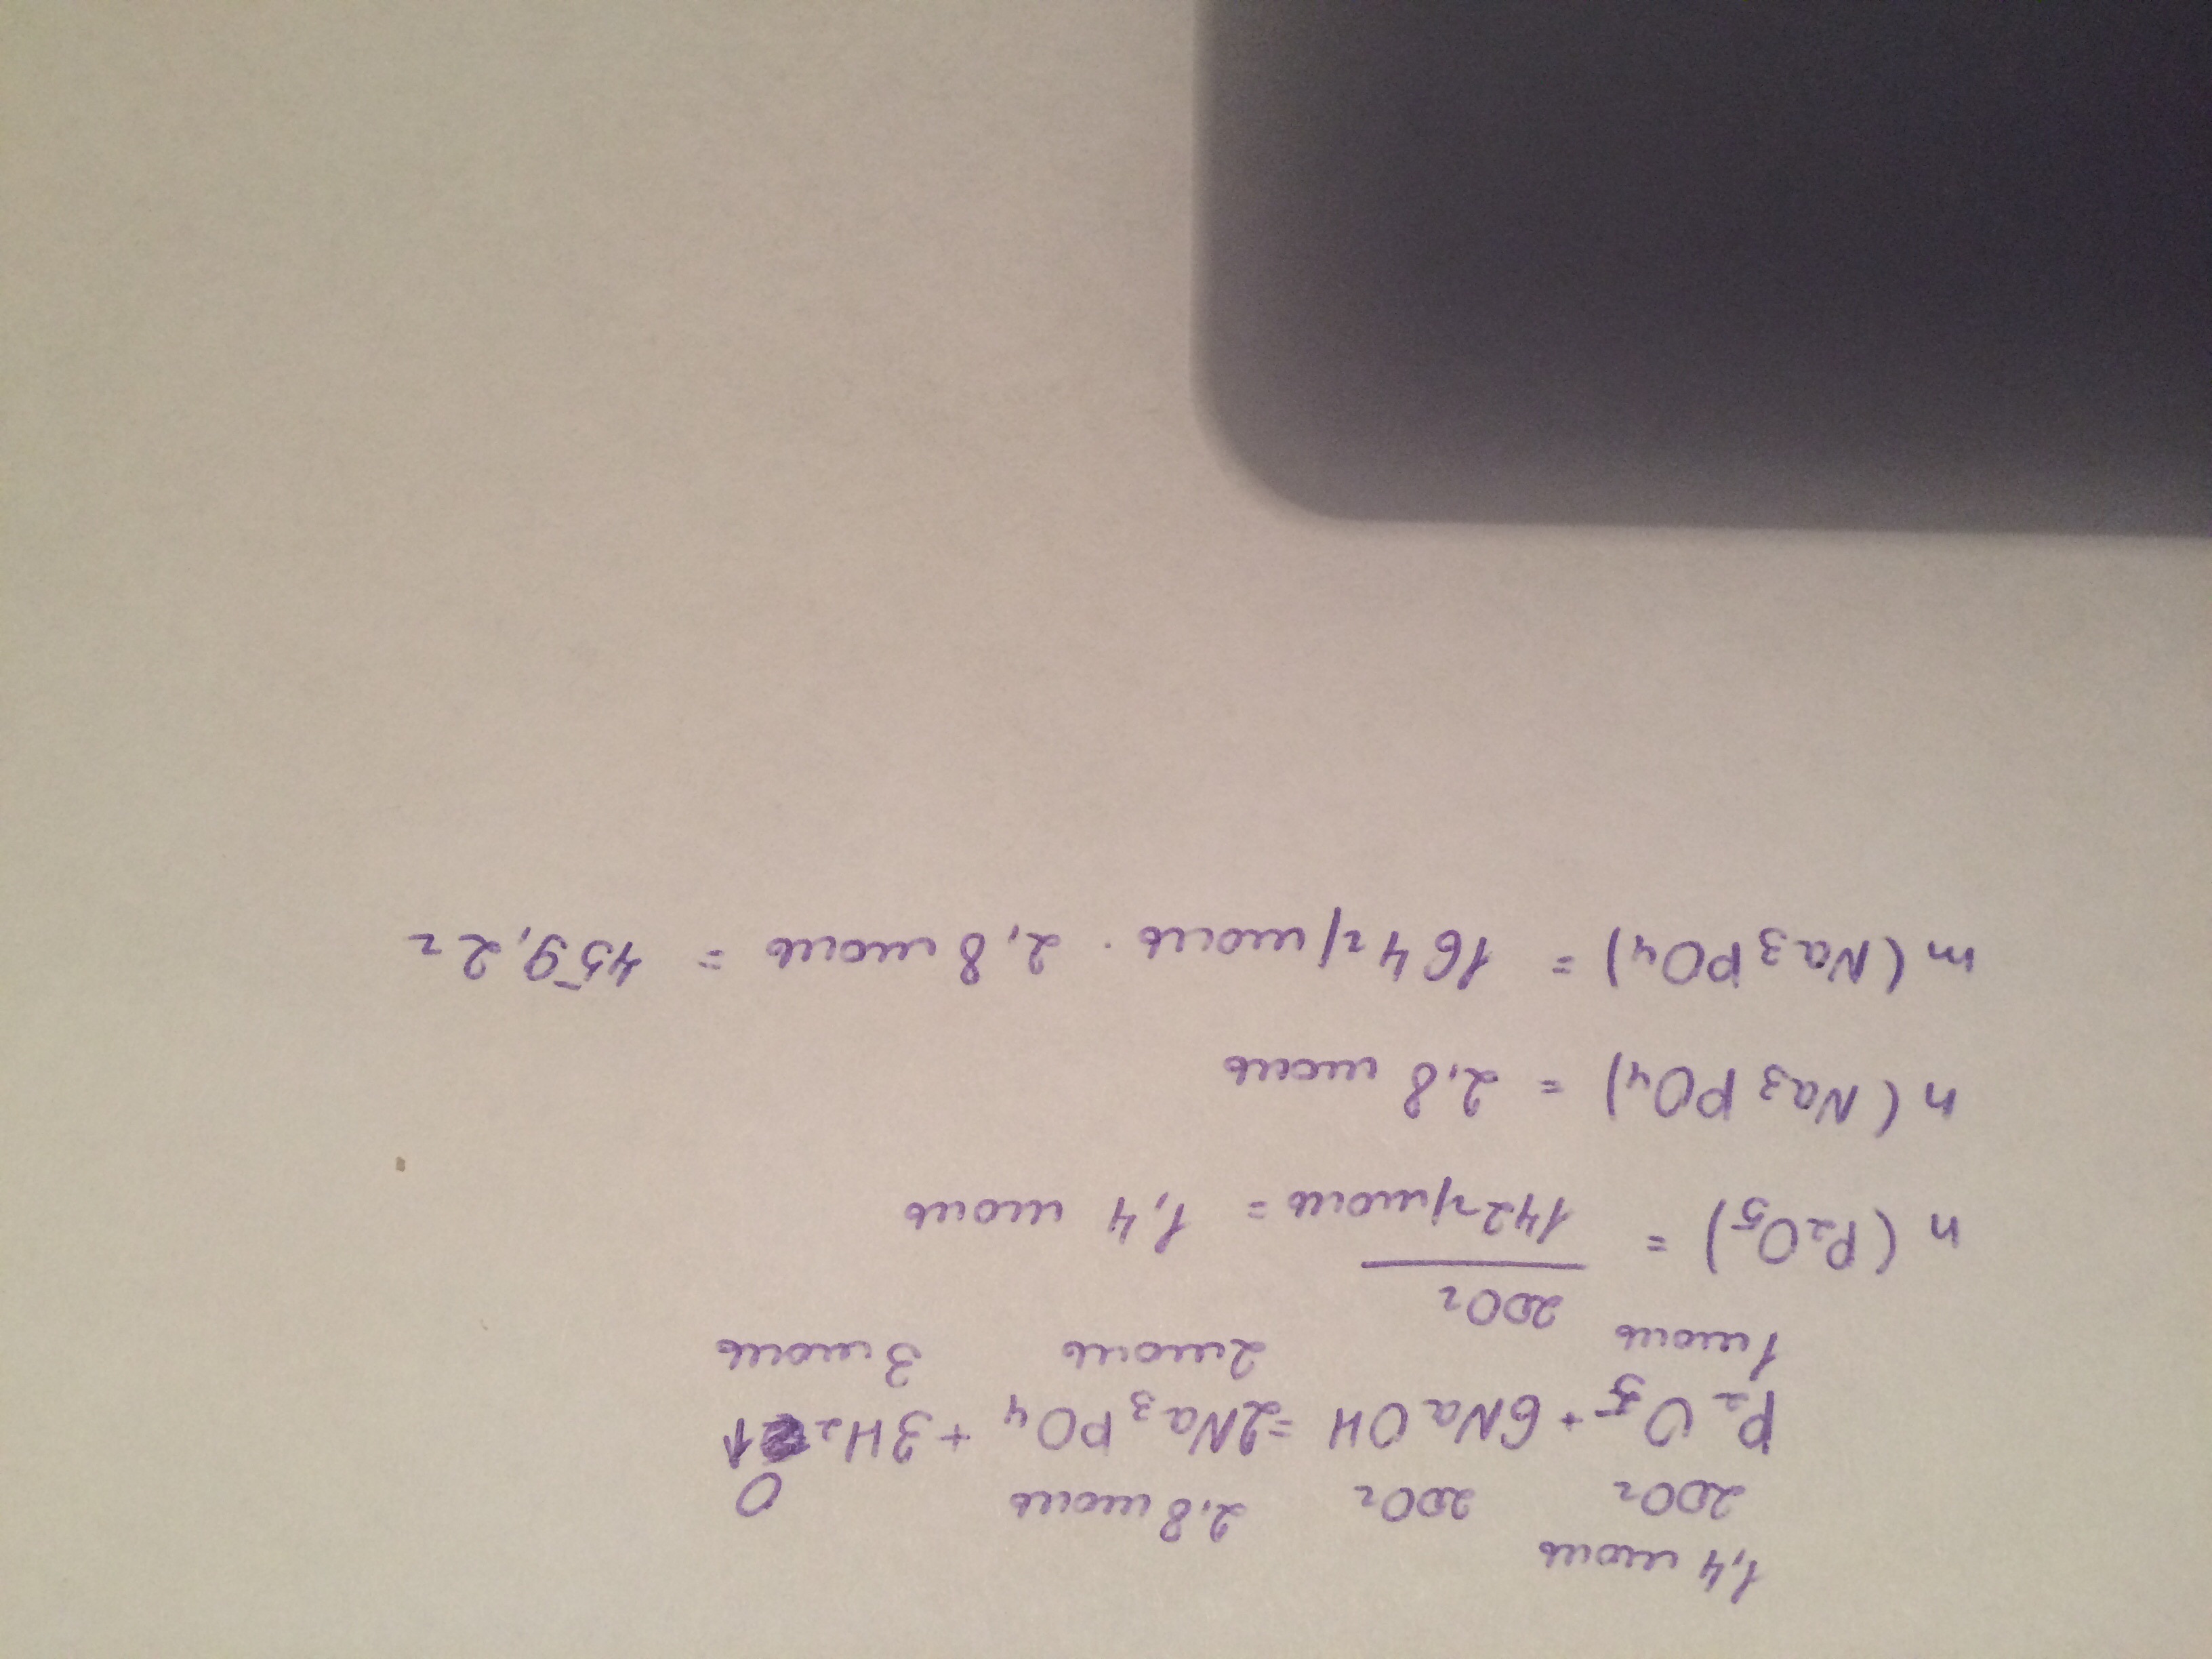 1,4 моль
200г 200г 2,8 моль O
P₂O₅ + 6NaOH = 2Na₃PO₄ + 3H₂↑
1 моль 2моль 3 моль
n(P₂O₅) = 200г / 142г/моль = 1,4 моль
n(Na₃PO₄) = 2,8 моль
m(Na₃PO₄) = 164г/моль · 2,8 моль = 459,2г